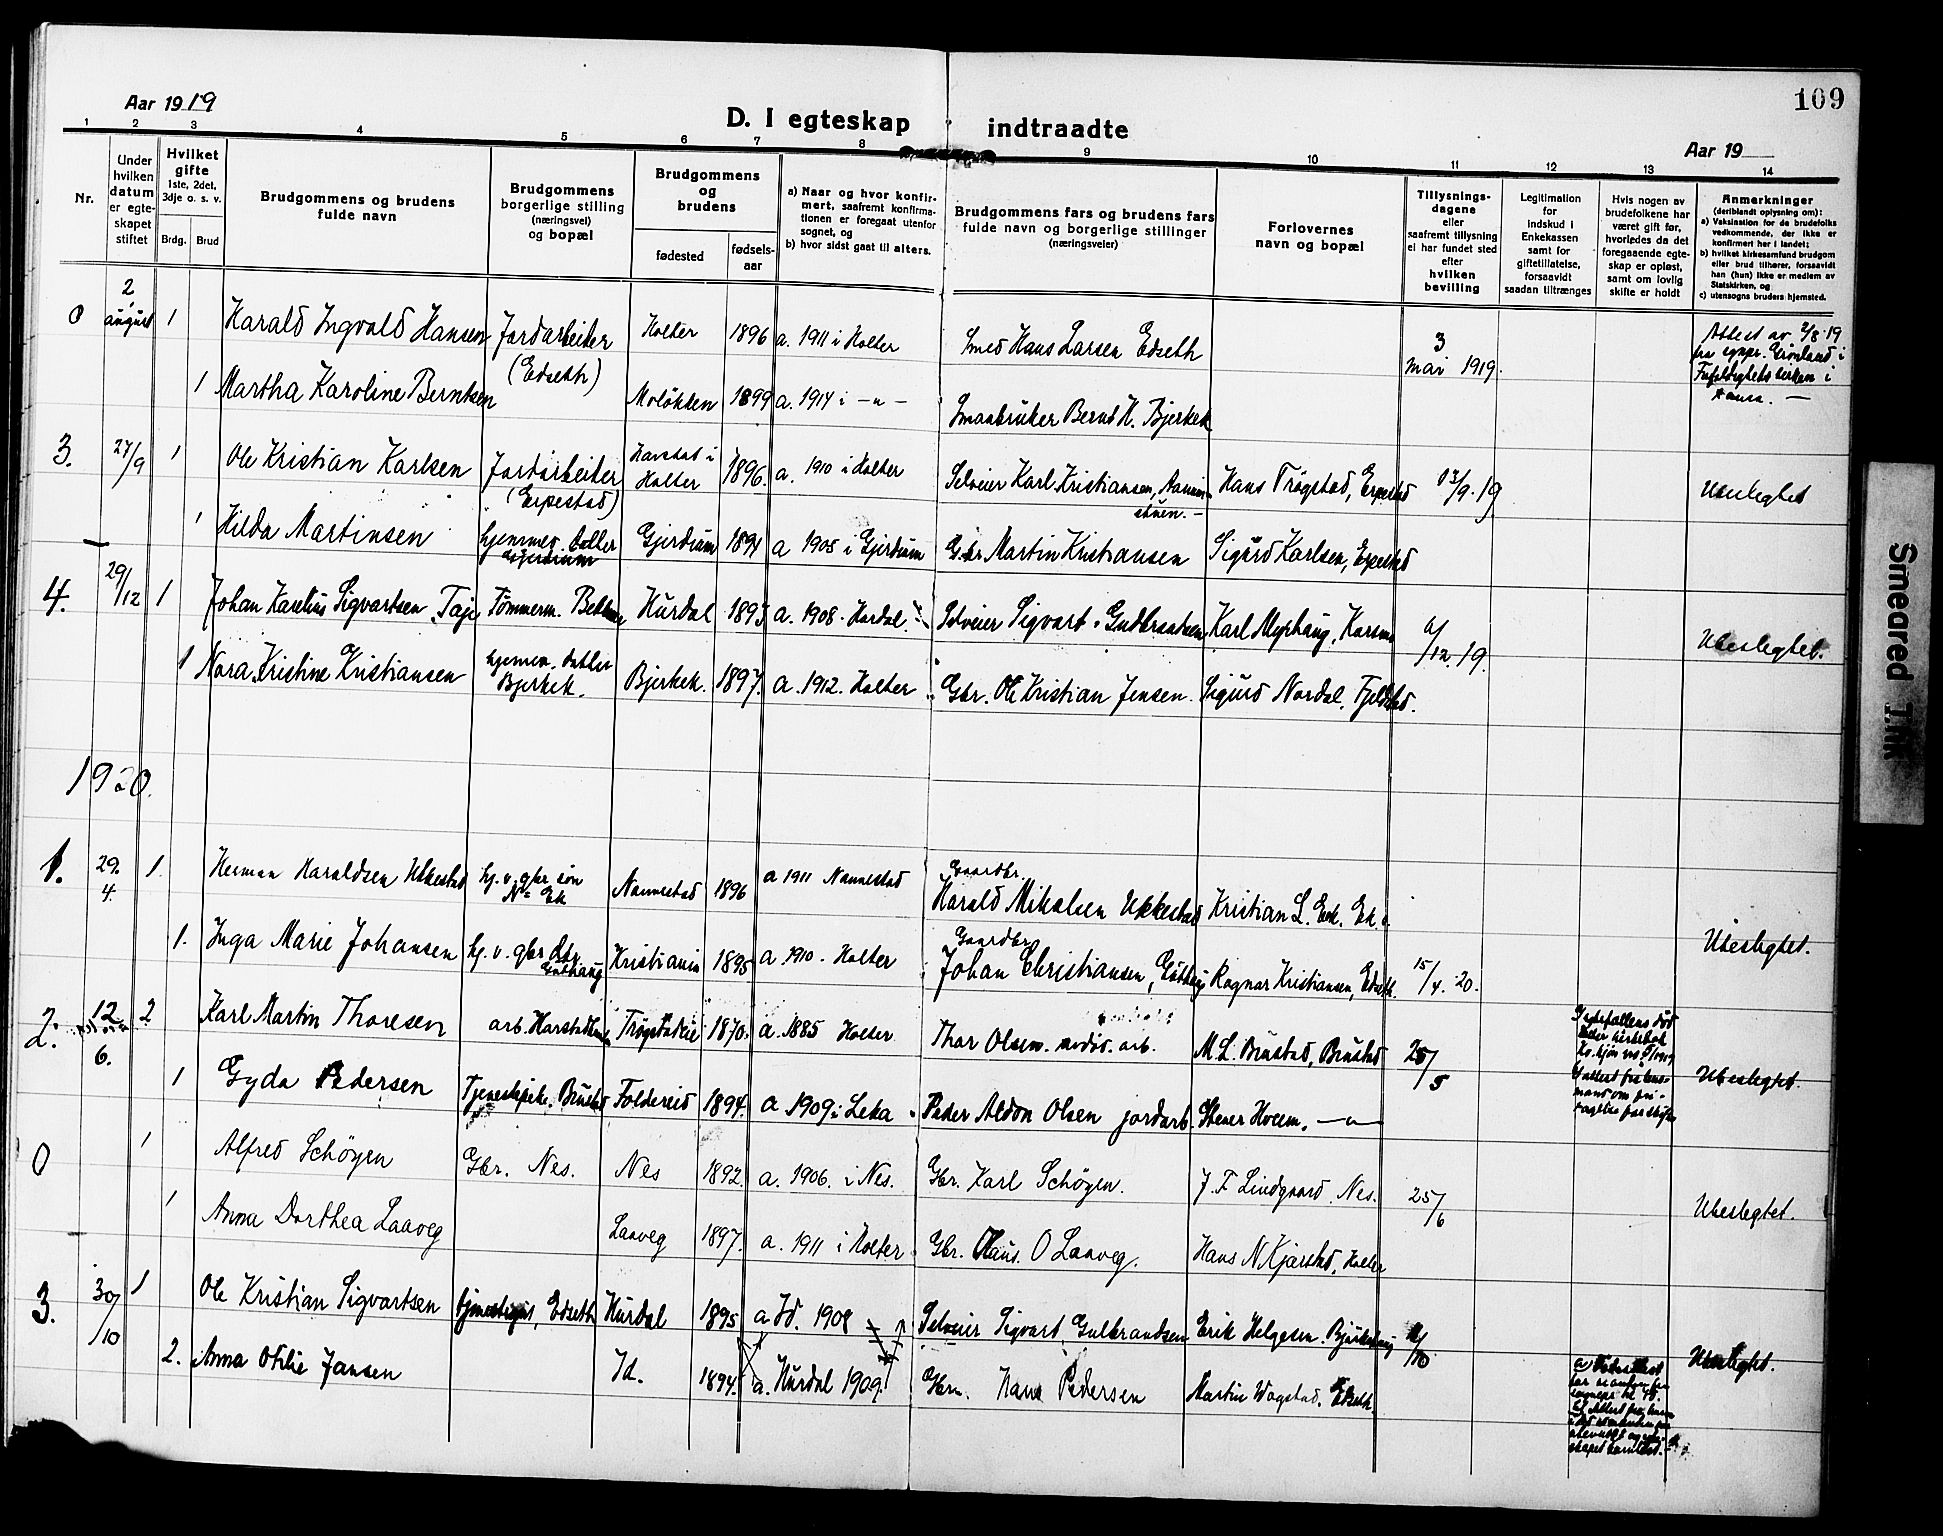 109
Aar 1919
D. I egteskap indtraadte
Aar 19
1 2 3 4 5 6 7 8 9 10 11 12 13 14
Nr.
Under hvilken datum er egteskapet stiftet
Hvilket gifte
1ste, 2det, 3dje o. s. v.
Brdg. Brud
Brudgommens og brudens fulde navn
Brudgommens borgerlige stilling (næringsvei) og bopæl
Brudgommens og brudens
fødested
fødsels-aar
a) Naar og hvor konfirmert, saafremt konfirmationen er foregaat utenfor sognet, og
b) hvor sidst gaat til alters.
Brudgommens fars og brudens fars fulde navn og borgerlige stillinger (næringsveier)
Forlovernes navn og bopæl
Tillysningsdagene eller saafremt tillysning ei har fundet sted efter hvilken bevilling
Legitimation for indskud i Enkekassen samt for giftetillatelse, forsaavidt saadan tiltrænges
Hvis nogen av brudefolkene har været gift før, hvorledes da det foregaaende egteskap er opløst, samt om lovlig skifte er holdt
Anmerkninger
(deriblandt oplysning om):
a) Vaksination for de brudefolks vedkommende, der ikke er konfirmert her i landet;
b) hvilket kirkesamfund brudgom eller brud tilhører, forsaavidt han (hun) ikke er medlem av Statskirken, og
c) utensogns bruders hjemsted.
0 2 august 1 Harald Ingvald Hansen Jordarbeider (Edseth) Holter 1896 a. 1911 i Holter Smed Hans Larsen Edseth 3 mai 1919. Attest av 2/8 19 fra sogpr. Grønland i
1 Martha Karoline Berntsen 1899 a. 1914 i —"— Smaabruker Bernt H. Bjerkek
3. 27/9 1 Ole Kristian Karlsen Jordarbeider (Erpestad) Harstad i Holter 1896. a. 1910 i Holter Selveier Karl Kristiansen, Hans Trøgstad, Erpestad 13/9. 19 Ubeslegtet
1 Hilda Martinsen hjemmev. datter Gjerdrum Gjerdrum 1894 a 1905 i Gjerdrum Gbr Martin Kristiansen Sigurd Karlsen, Erpestad
4. 29/12 1 Johan Karelius Sigvartsen Taje Tømmerm. Hurdal 1893 a. 1908. Hurdal. Selveier Sigvart Gudbrandsen Karl 6/12. 19. Ubeslegtet.
1 Nora Kristine Kristiansen hjemmev. datter Bjerkek. Bjerkek. 1897. a. 1912. Holter Gbr. Ole Kristian Jensen. Sigurd Nordal, Fjeldstad.
1920.
1. 29. 4. 1. Herman Haraldsen Ukkestad hj. v. gbr søn Ek Nannestad 1896 a 1911 Nannestad Gaardbr. Harald Mikalsen Ukkestad Kristian L. Eek. Ek.
1. Inga Marie Johansen hj. v. gbr dtr. Kristiania 1895 a 1910. Holter Gaardbr Johan Christiansen, Ragnar Kristiansen, Edseth. 15/4. 20. Ubeslegtet.
2. 12 6. 2 Karl Martin Thoresen arb. 1870. a. 1885 Holter Thor Olsen. arb. M. L. Brustad, Brustad 25/5
1 Gyda Pedersen Tjenestepike. Brustad Foldereid 1894. a 1909 i Leka Peder Aldon Olsen jordarb. Stener Hveem. —"— Ubeslegtet.
0 1 Alfred Schøyen Gbr. Nes. Nes 1892. a. 1906. i Nes. Gbr. Karl Schøyen. J. F. Lindgaard Nes. 25/6 Ubeslegtet.
1 Anna Dorthea Laaveg Laaveg 1897. a. 1911 i Holter Gbr. Claus. O Laaveg. Hans N Kjærstad, Holter
3. 30/10 1 Ole Kristian Sigvartsen Edseth Hurdal 1895 a Id. 1908 Selveier Sigvart Gulbrandsen Erik Helgesen. /10 Ubeslegtet.
2. Anna Otilie Jansen Id. 1894. a. Hurdal 1909. Hans Pedersen Martin Wagstad. Edseth.
Smeared Ink